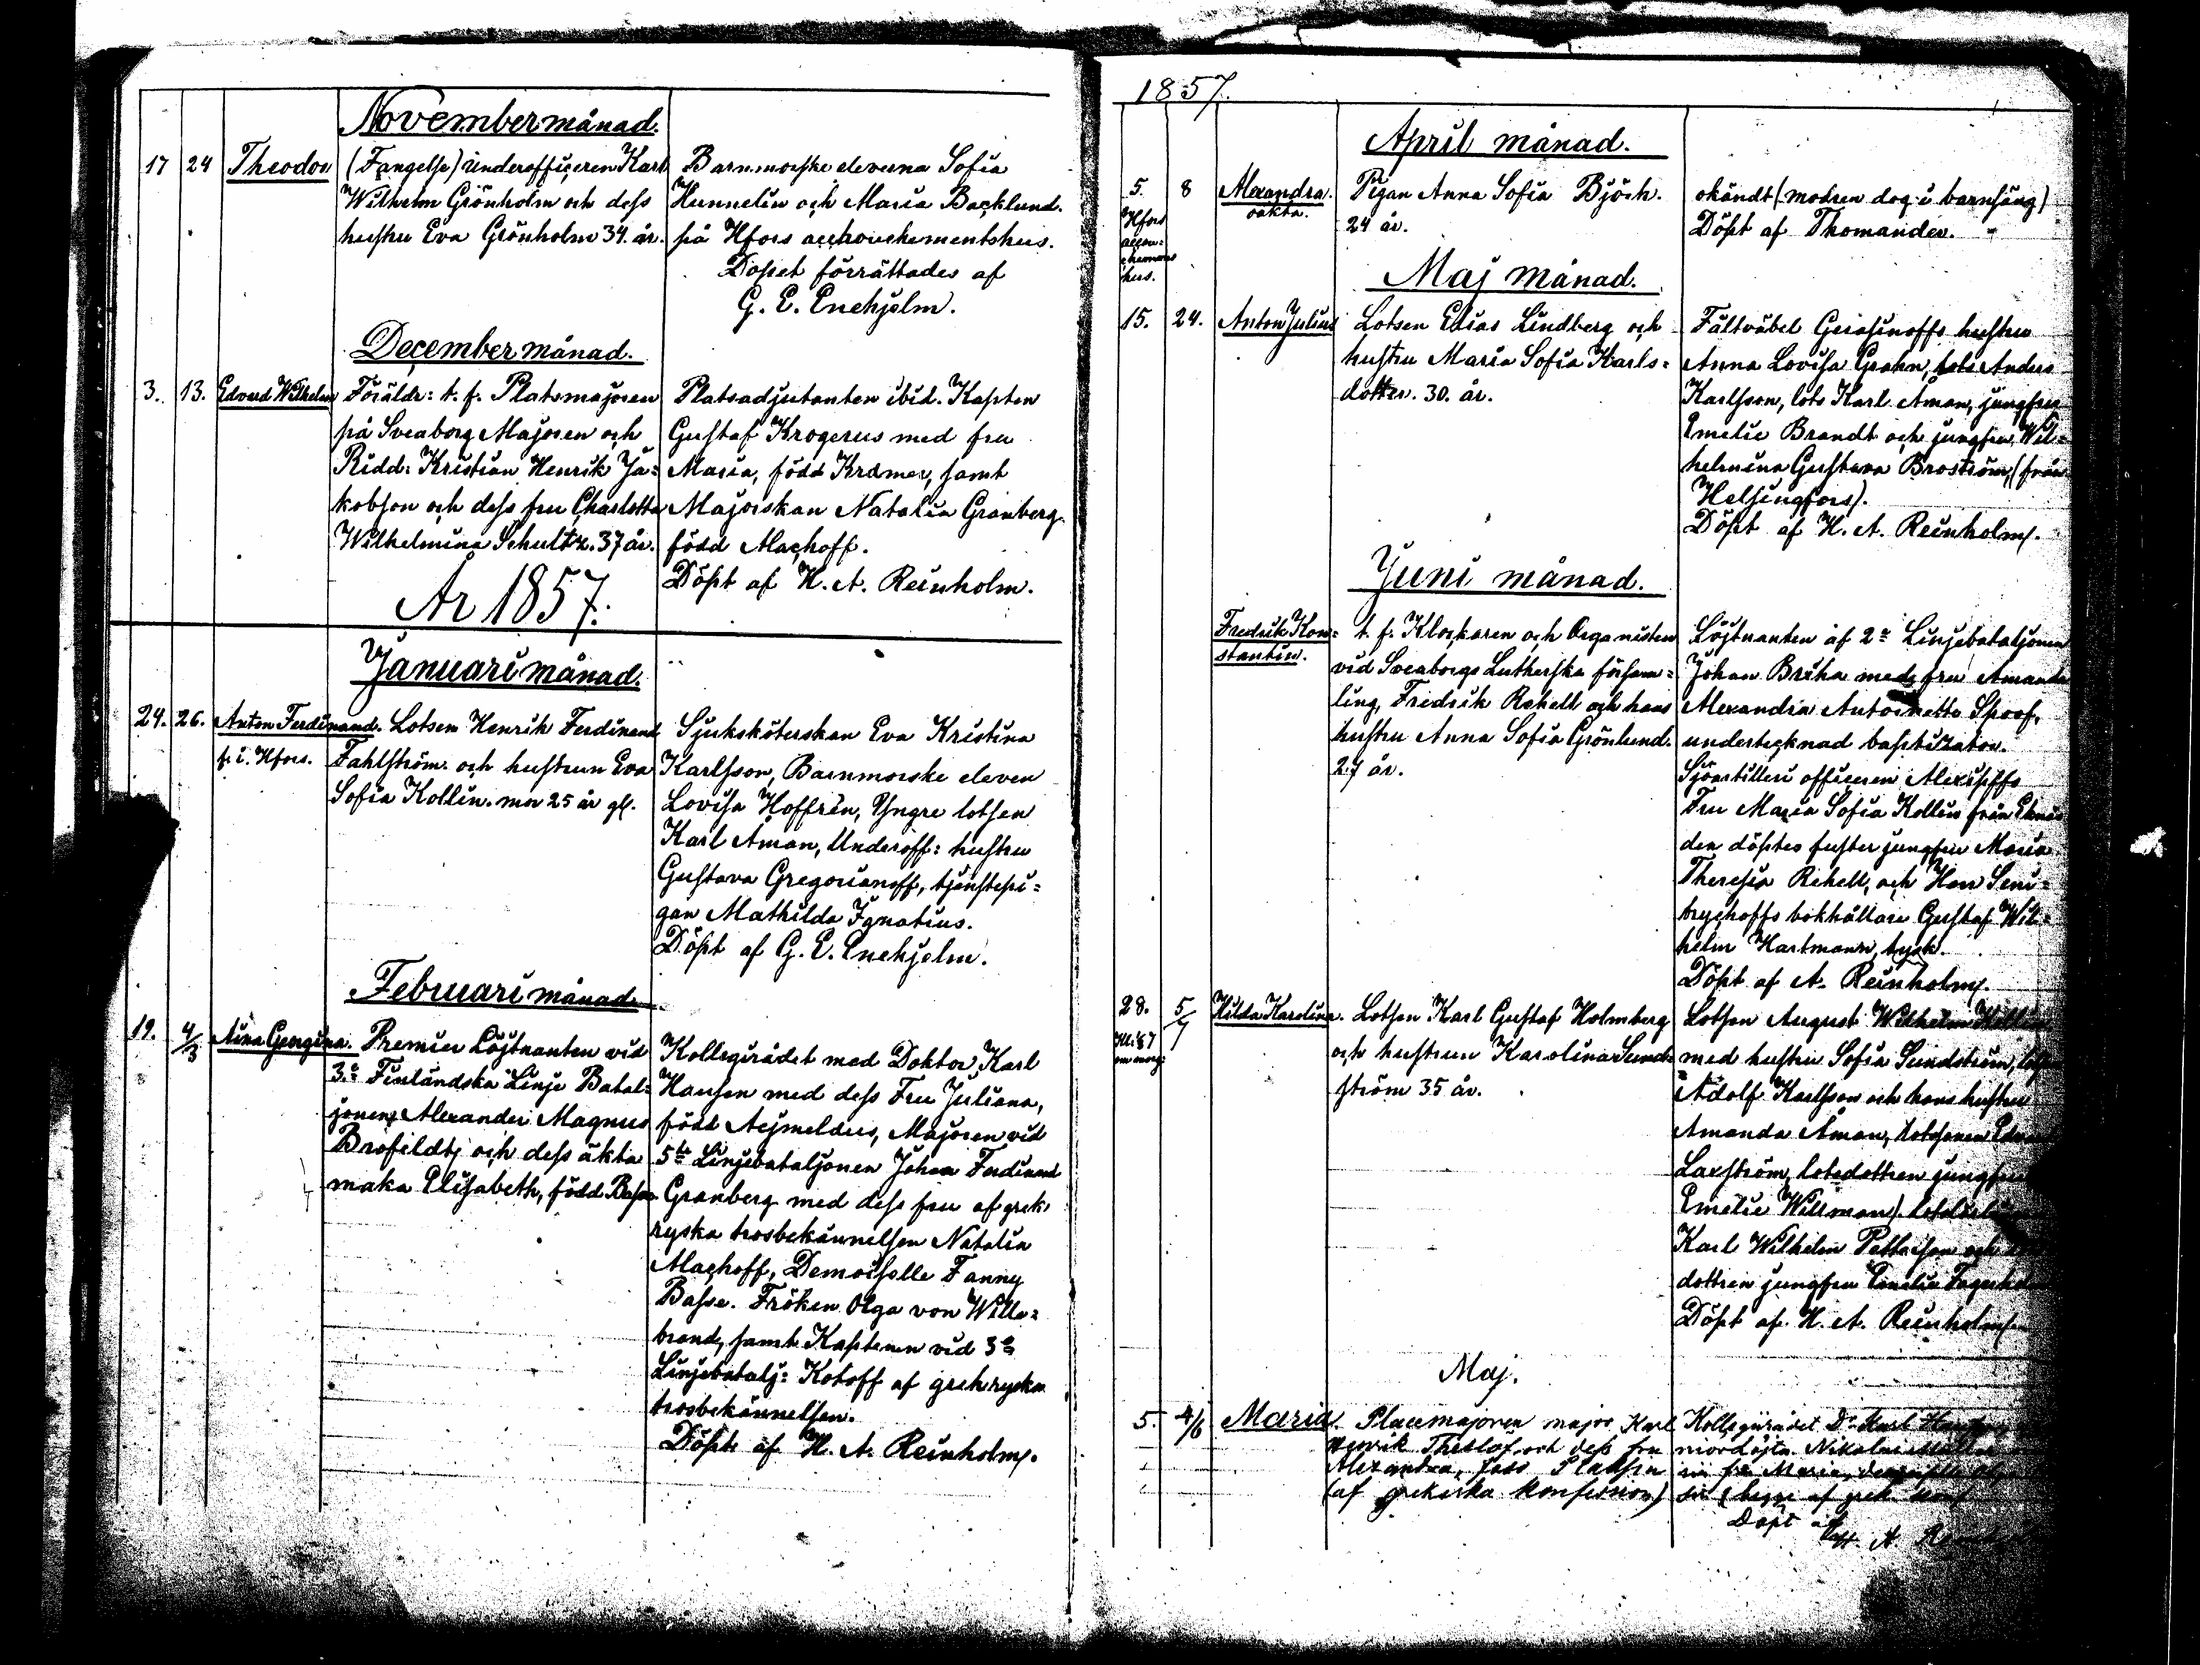 Novembermånad.
17 24 Theodor (Fangelse) underofficeren Karl
Wilhelm Grönholm och dess
hustru Eva Grönholm 34. år.
Barnmorske eleverna Sofia
Hunnelin och Maria Backlund.
på Hfors acchouchementshus.
Dopet förrättades af
G. E. Enehjelm.
December månad.
3. 13. Edvard Wilhelm Föräldr: t. f. Platsmajoren
på Sveaborg Majoren och
Ridd: Kristian Henrik Ja=
kobson och dess fru Charlotta
Wilhelmina Schultz. 37 år.
Platsadjutanten ibid. Kapten
Gustaf Krogerus med fru
Maria, född Kramer, samt
Majorskan Natalia Granberg
född Machoff.
Döpt af H. A. Reinholm.
År 1857.
Januari månad.
24. 26. Anton Ferdinand. Lotsen Henrik Ferdinand
f. i. Hfors. Fahlström och hustrun Eva
Sofia Kollin. mor 25 år gl.
Sjuksköterskan Eva Kristina
Karlsson, Barnmorske eleven
Lovisa Hoffrén, Yngre lotsen
Karl Åman, Underoff: hustru
Gustava Gregorianoff, tjenstepi=
gan Mathilda Ignatius.
Döpt af G. E. Enehjelm.
Februari månad
19. 4/3 Aina Georgina. Premier Löjtnanten vid
3:e Finländska Linje Batal=
jonen Alexander Magnus
Brofeldt och dess äkta
maka Elisabeth, född Basse
Kollegirådet med Doktor Karl
Hansen med dess Fru Juliana,
född Aejmelæus, Majoren vid
5te Linjebataljonen Johan Ferdinand
Granberg med dess fru af grek.
ryska trosbekännelsen Natalia
Machoff, Demoiselle Fanny
Basse. Fröken Olga von Wille=
brand, samt Kaptenen vid 3e
Linjebatalj: Kotoff af grekryska
trosbekännelsen.
Döpt af H. A. Reinholm.
1857.
April månad.
5. 8 Alexandra. Pigan Anna Sofia Björk.
oäkta. 24 år.
Hfors
accou=
chements
hus.
okändt (modren dog i barnsäng)
Döpt af Thomander.
Maj månad.
15. 24. Anton Julius Lotsen Elias Lindberg och
hustru Maria Sofia Karls=
dotter. 30. år.
Fältväbel Gerasinoffs hustru
Anna Lovisa Grahn, lots Anders
Karlsson, lots Karl Åman, jungfru
Emelie Brandt och jungfru Wil=
helmina Gustava Broström, (från
Helsingfors).
Döpt af H. A. Reinholm.
Juni månad.
Fredrik Kon=
stantin.
t. f. Klockaren och Organisten
vid Sveaborgs Lutherska försam=
ling, Fredrik Rehell och hans
hustru Anna Sofia Grönlund.
27 år.
Löjtnanten af 2:a Linjebataljonen
Johan Bréha med fru Amanda
Alexandra Antoinette Spoof,
undertecknad baptizator.
Sjöartilleri officeren
Fru Maria Sofia Kollin från
den döptes faster jungfru Maria
Theresia Rehell, och Herr Seni=
brychoffs bokhållare Gustaf Wil=
helm Hartmann, tysk.
Döpt af A. Reinholm.
28. 5/7 Hilda Karolina. Lotsen Karl Gustaf Holmberg
Kl: 87
om morg:
och hustrun Karolina Sund=
ström 35 år.
Lotsen August Wilhelm
med hustru Sofia Sundström,
Adolf Karlsson och hans hustru
Amanda Åman,
Laxström, lotsdottren jungfru
Emelie Willman,
Karl Wilhelm Petterson och
dottren jungfru Emelie
Döpt af H. A. Reinholm.
Maj.
5. 4/6 Maria. Placemajoren major Karl
Henrik Theslöf och dess fru
Alexandra, född
(af grekiska konfession)
Kollegiirådet Dr Karl
Nikolai
fru Maria,
begge af grek. konf
Döpt af
H. A.